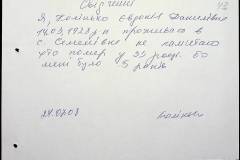 Свідчення
Я, Хомінько Євдокія Данилівна
14.03.1928 р.н проживаю в
с. Семенівка не пам'ятаю
хто помер у 33 році бо
мені було 5 років
24.07.08